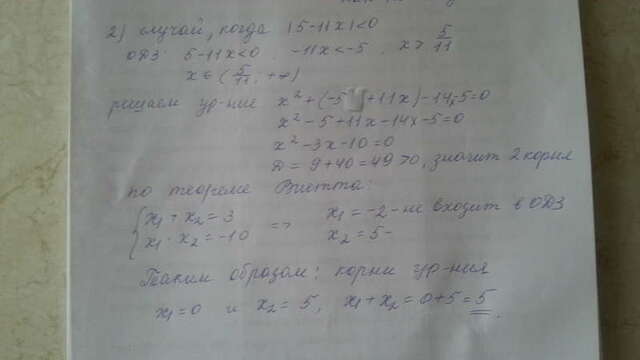 2) случай, когда |5-11x|<0
ОДЗ: 5-11x<0 . -11x<-5 . x> 5/11
x ∈ (5/11; +∞)
решаем ур-ние x²+(-5 +11x)-14x-5=0
x²-5+11x-14x-5=0
x²-3x-10=0
D=9+40=49>0, значит 2 корня
по теореме Виетта:
{ x₁+x₂=3 => x₁=-2-не входит в ОДЗ
x₁·x₂=-10 x₂=5-
Таким образом: корни ур-ния
x₁=0 и x₂=5, x₁+x₂=0+5=5.